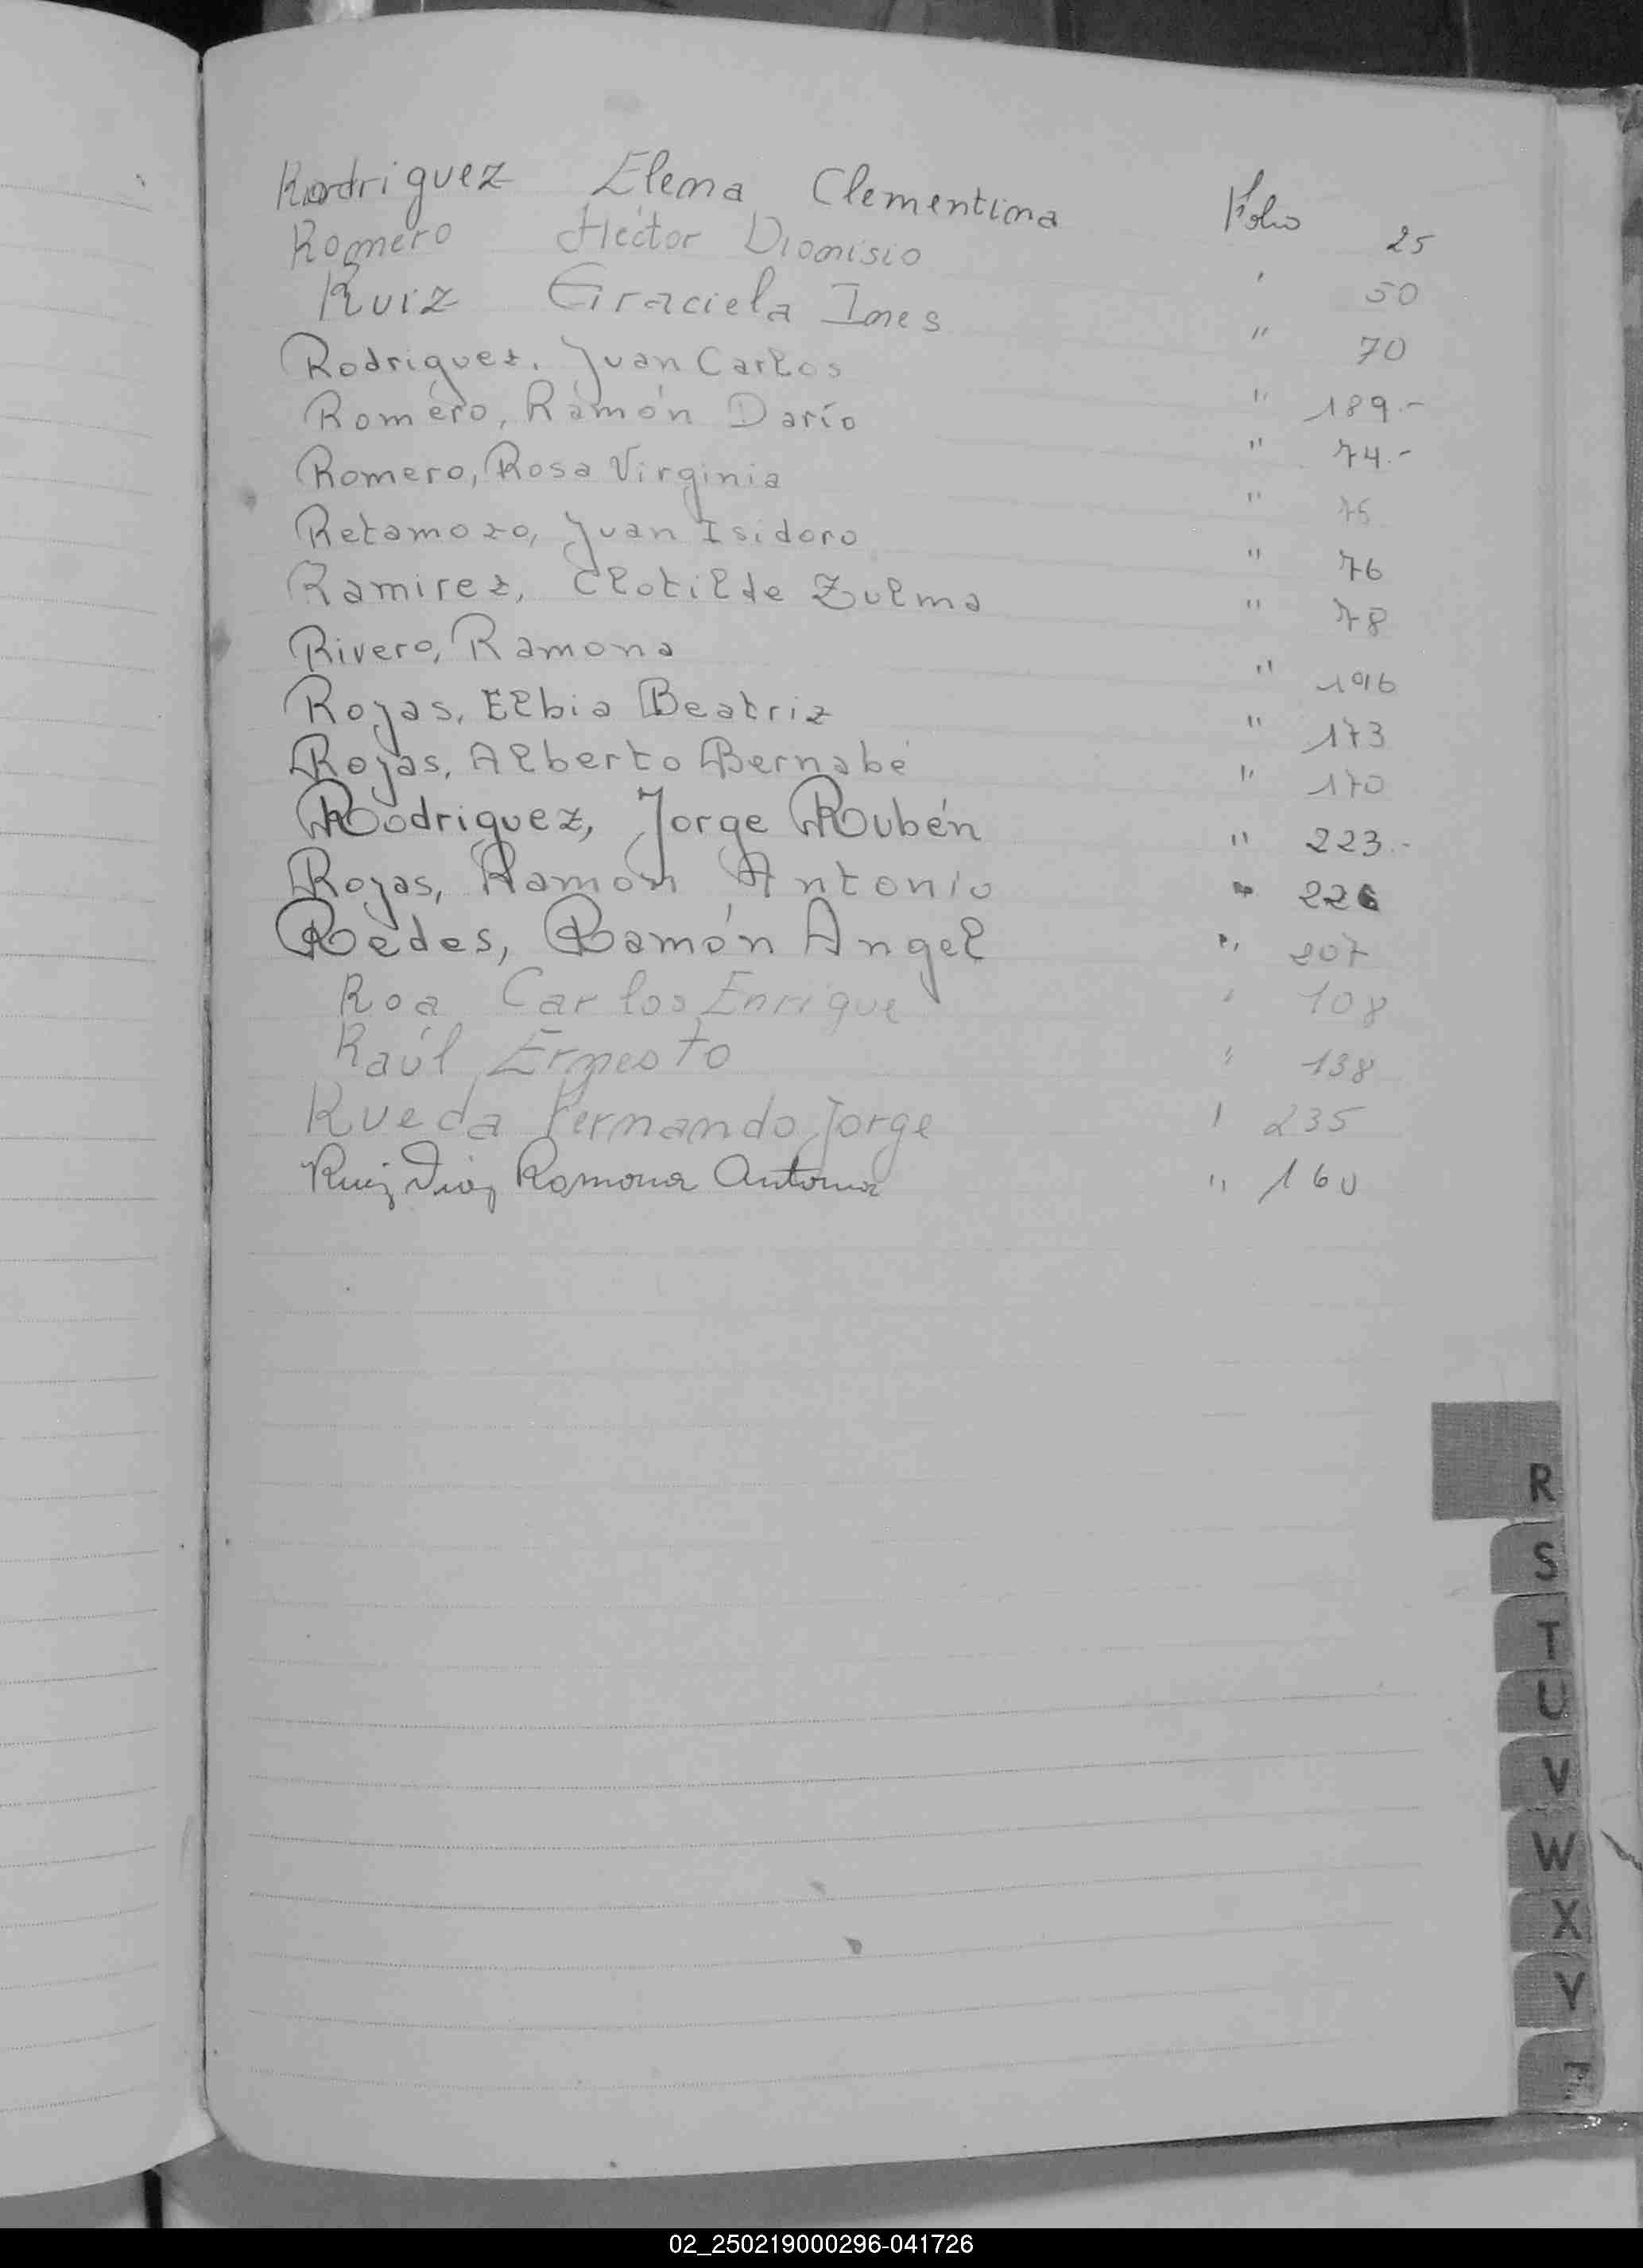 Rodriguez Elena Clementina Folio 25
Romero Héctor Dionisio ' 50
Ruiz Graciela Ines " 70
Rodriguez, Juan Carlos " 189.-
Romero, Ramón Darío " 74.-
Romero, Rosa Virginia " 75
Retamozo, Juan Isidoro " 76
Ramirez, Clotilde Zulma " 78
Rivero, Ramona " 196
Rojas, Elbia Beatriz " 173
Rojas, Alberto Bernabé " 170
Rodriguez, Jorge Rubén " 223.-
Rojas, Ramón Antonio " 226
Redes, Ramón Angel " 207
Roa Carlos Enrique " 108
Raúl Ernesto " 138
Rueda Fernando Jorge ' 235
Ruiz Diaz Ramona Antonia " 160
R
S
T
U
V
W
X
Y
02_250219000296-041726